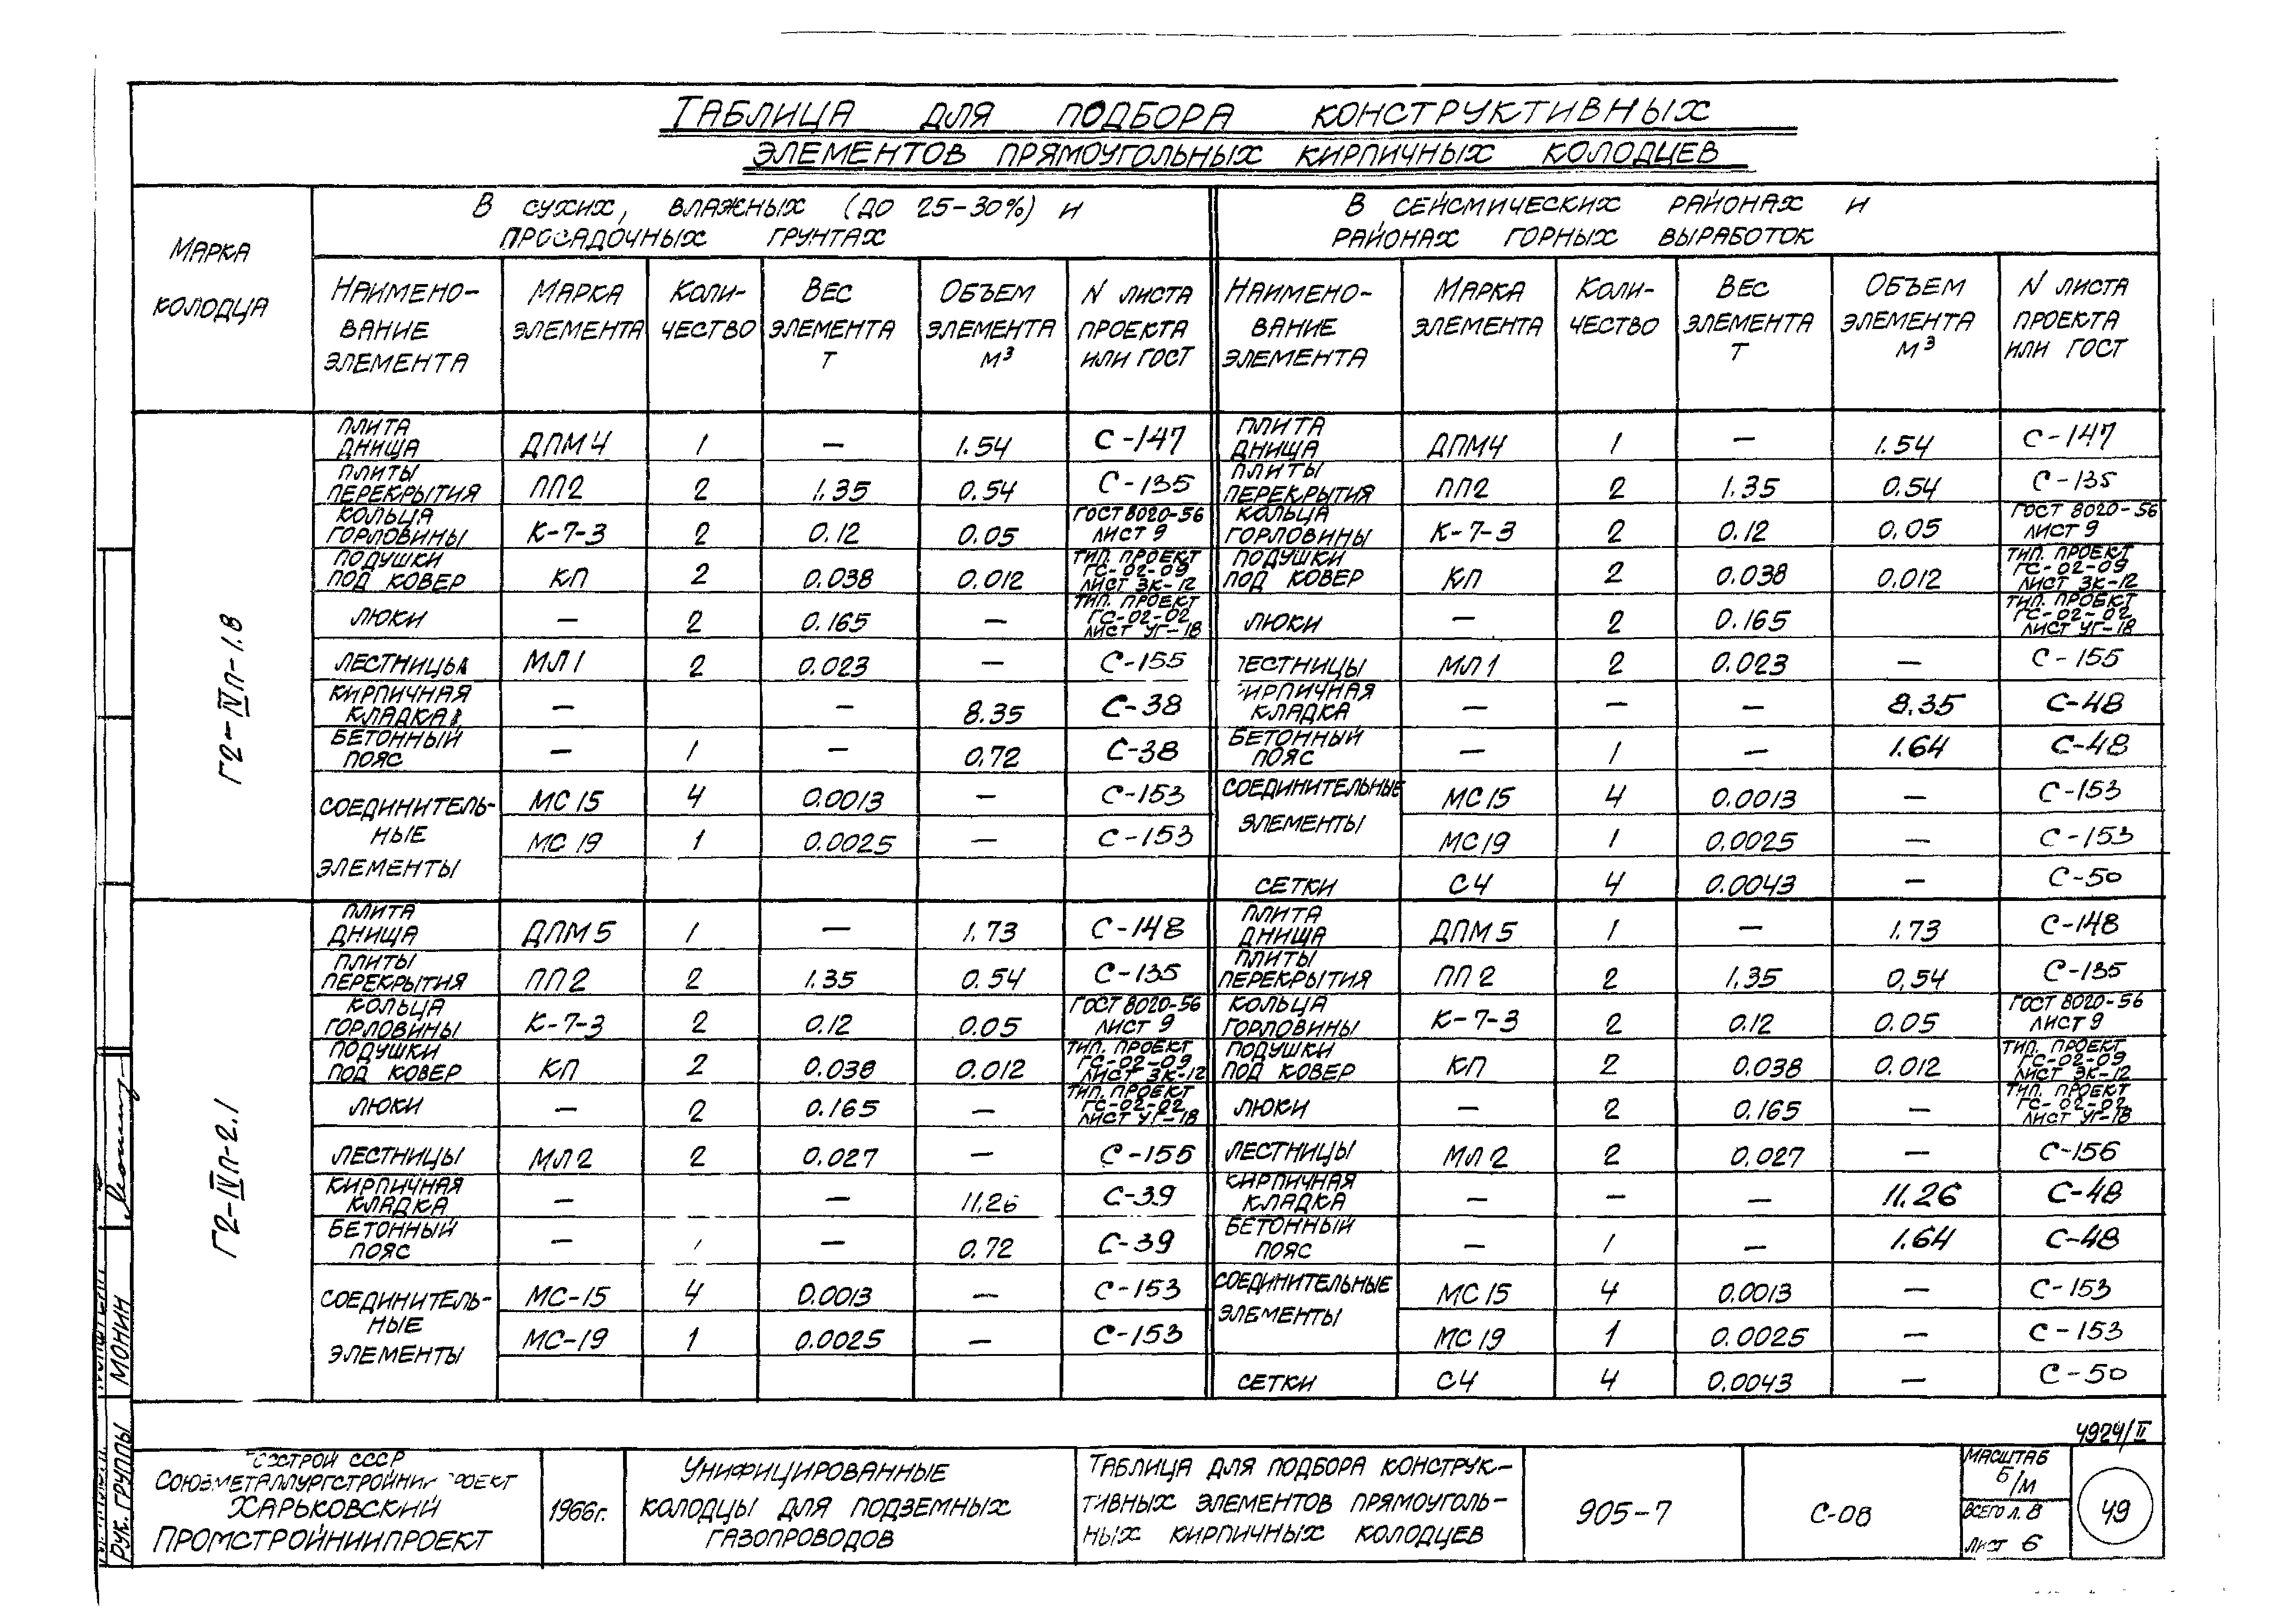 Таблица для подбора конструктивных
элементов прямоугольных кирпичных колодцев
Марка колодца
В сухих, влажных (до 25-30%) и
просадочных грунтах
В сейсмических районах и
районах горных выработок
Наимено-
вание
элемента
Марка
элемента
Коли-
чество
Вес
элемента
Т
Объем
элемента
м³
N листа
проекта
или ГОСТ
Наимено-
вание
элемента
Марка
элемента
Коли-
чество
Вес
элемента
Т
Объем
элемента
м³
N листа
проекта
или ГОСТ
Г2-IVп-1.8
плита днища ДПМ4 1 — 1.54 С-147 плита днища ДПМ4 1 — 1.54 С-147
плиты перекрытия ПП2 2 1.35 0.54 С-135 плиты перекрытия ПП2 2 1.35 0.54 С-135
кольца горловины К-7-3 2 0.12 0.05 ГОСТ 8020-56 лист 9 кольца горловины К-7-3 2 0.12 0.05 ГОСТ 8020-56 лист 9
подушки под ковер КП 2 0.038 0.012 тип. проект ГС-02-09 лист ЗК-12 подушки под ковер КП 2 0.038 0.012 тип. проект ГС-02-09 лист ЗК-12
люки — 2 0.165 — тип. проект ГС-02-02 лист УГ-18 люки — 2 0.165 — тип. проект ГС-02-02 лист УГ-18
лестницы МЛ1 2 0.023 — С-155 лестницы МЛ1 2 0.023 — С-155
кирпичная кладка — — 8.35 С-38 кирпичная кладка — — — 8.35 С-48
бетонный пояс — 1 — 0.72 С-38 бетонный пояс — 1 — 1.64 С-48
соединитель-
ные
элементы
МС15 4 0.0013 — С-153 соединительные МС15 4 0.0013 — С-153
МС19 1 0.0025 — С-153 элементы МС19 1 0.0025 — С-153
сетки С4 4 0.0043 — С-50
Г2-IVп-2.1
плита днища ДПМ5 1 — 1.73 С-148 плита днища ДПМ5 1 — 1.73 С-148
плиты перекрытия ПП2 2 1.35 0.54 С-135 плиты перекрытия ПП2 2 1.35 0,54 С-135
кольца горловины К-7-3 2 0.12 0.05 ГОСТ 8020-56 лист 9 кольца горловины К-7-3 2 0.12 0.05 ГОСТ 8020-56 лист 9
подушки под ковер КП 2 0.038 0.012 тип. проект ГС-02-09 лист ЗК-12 подушки под ковер КП 2 0.038 0.012 тип. проект ГС-02-09 лист ЗК-12
люки — 2 0.165 — тип. проект ГС-02-02 лист УГ-18 люки — 2 0.165 — тип. проект ГС-02-02 лист УГ-18
лестницы МЛ2 2 0.027 — С-155 лестницы МЛ2 2 0.027 — С-156
кирпичная кладка — — 11.26 С-39 кирпичная кладка — — — 11.26 С-48
бетонный пояс — 1 — 0.72 С-39 бетонный пояс — 1 — 1.64 С-48
соединитель-
ные
элементы
МС-15 4 0.0013 — С-153 соединительные МС15 4 0.0013 — С-153
МС-19 1 0.0025 — С-153 элементы МС19 1 0.0025 — С-153
сетки С4 4 0.0043 — С-50
4924/II
Госстрой СССР
Союзметаллургстройниипроект
Харьковский
Промстройниипроект
1966г.
Унифицированные
колодцы для подземных
газопроводов
Таблица для подбора конструк-
тивных элементов прямоуголь-
ных кирпичных колодцев
905-7
С-08
масштаб
Б/М
всего л. 8
лист 6
49
Рук. группы Монин